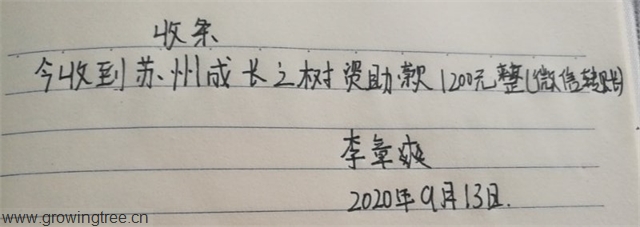 收条
今收到苏州成长之树资助款1200元整(微信转账)
李章爽
2020年9月13日.
www.growingtree.cn